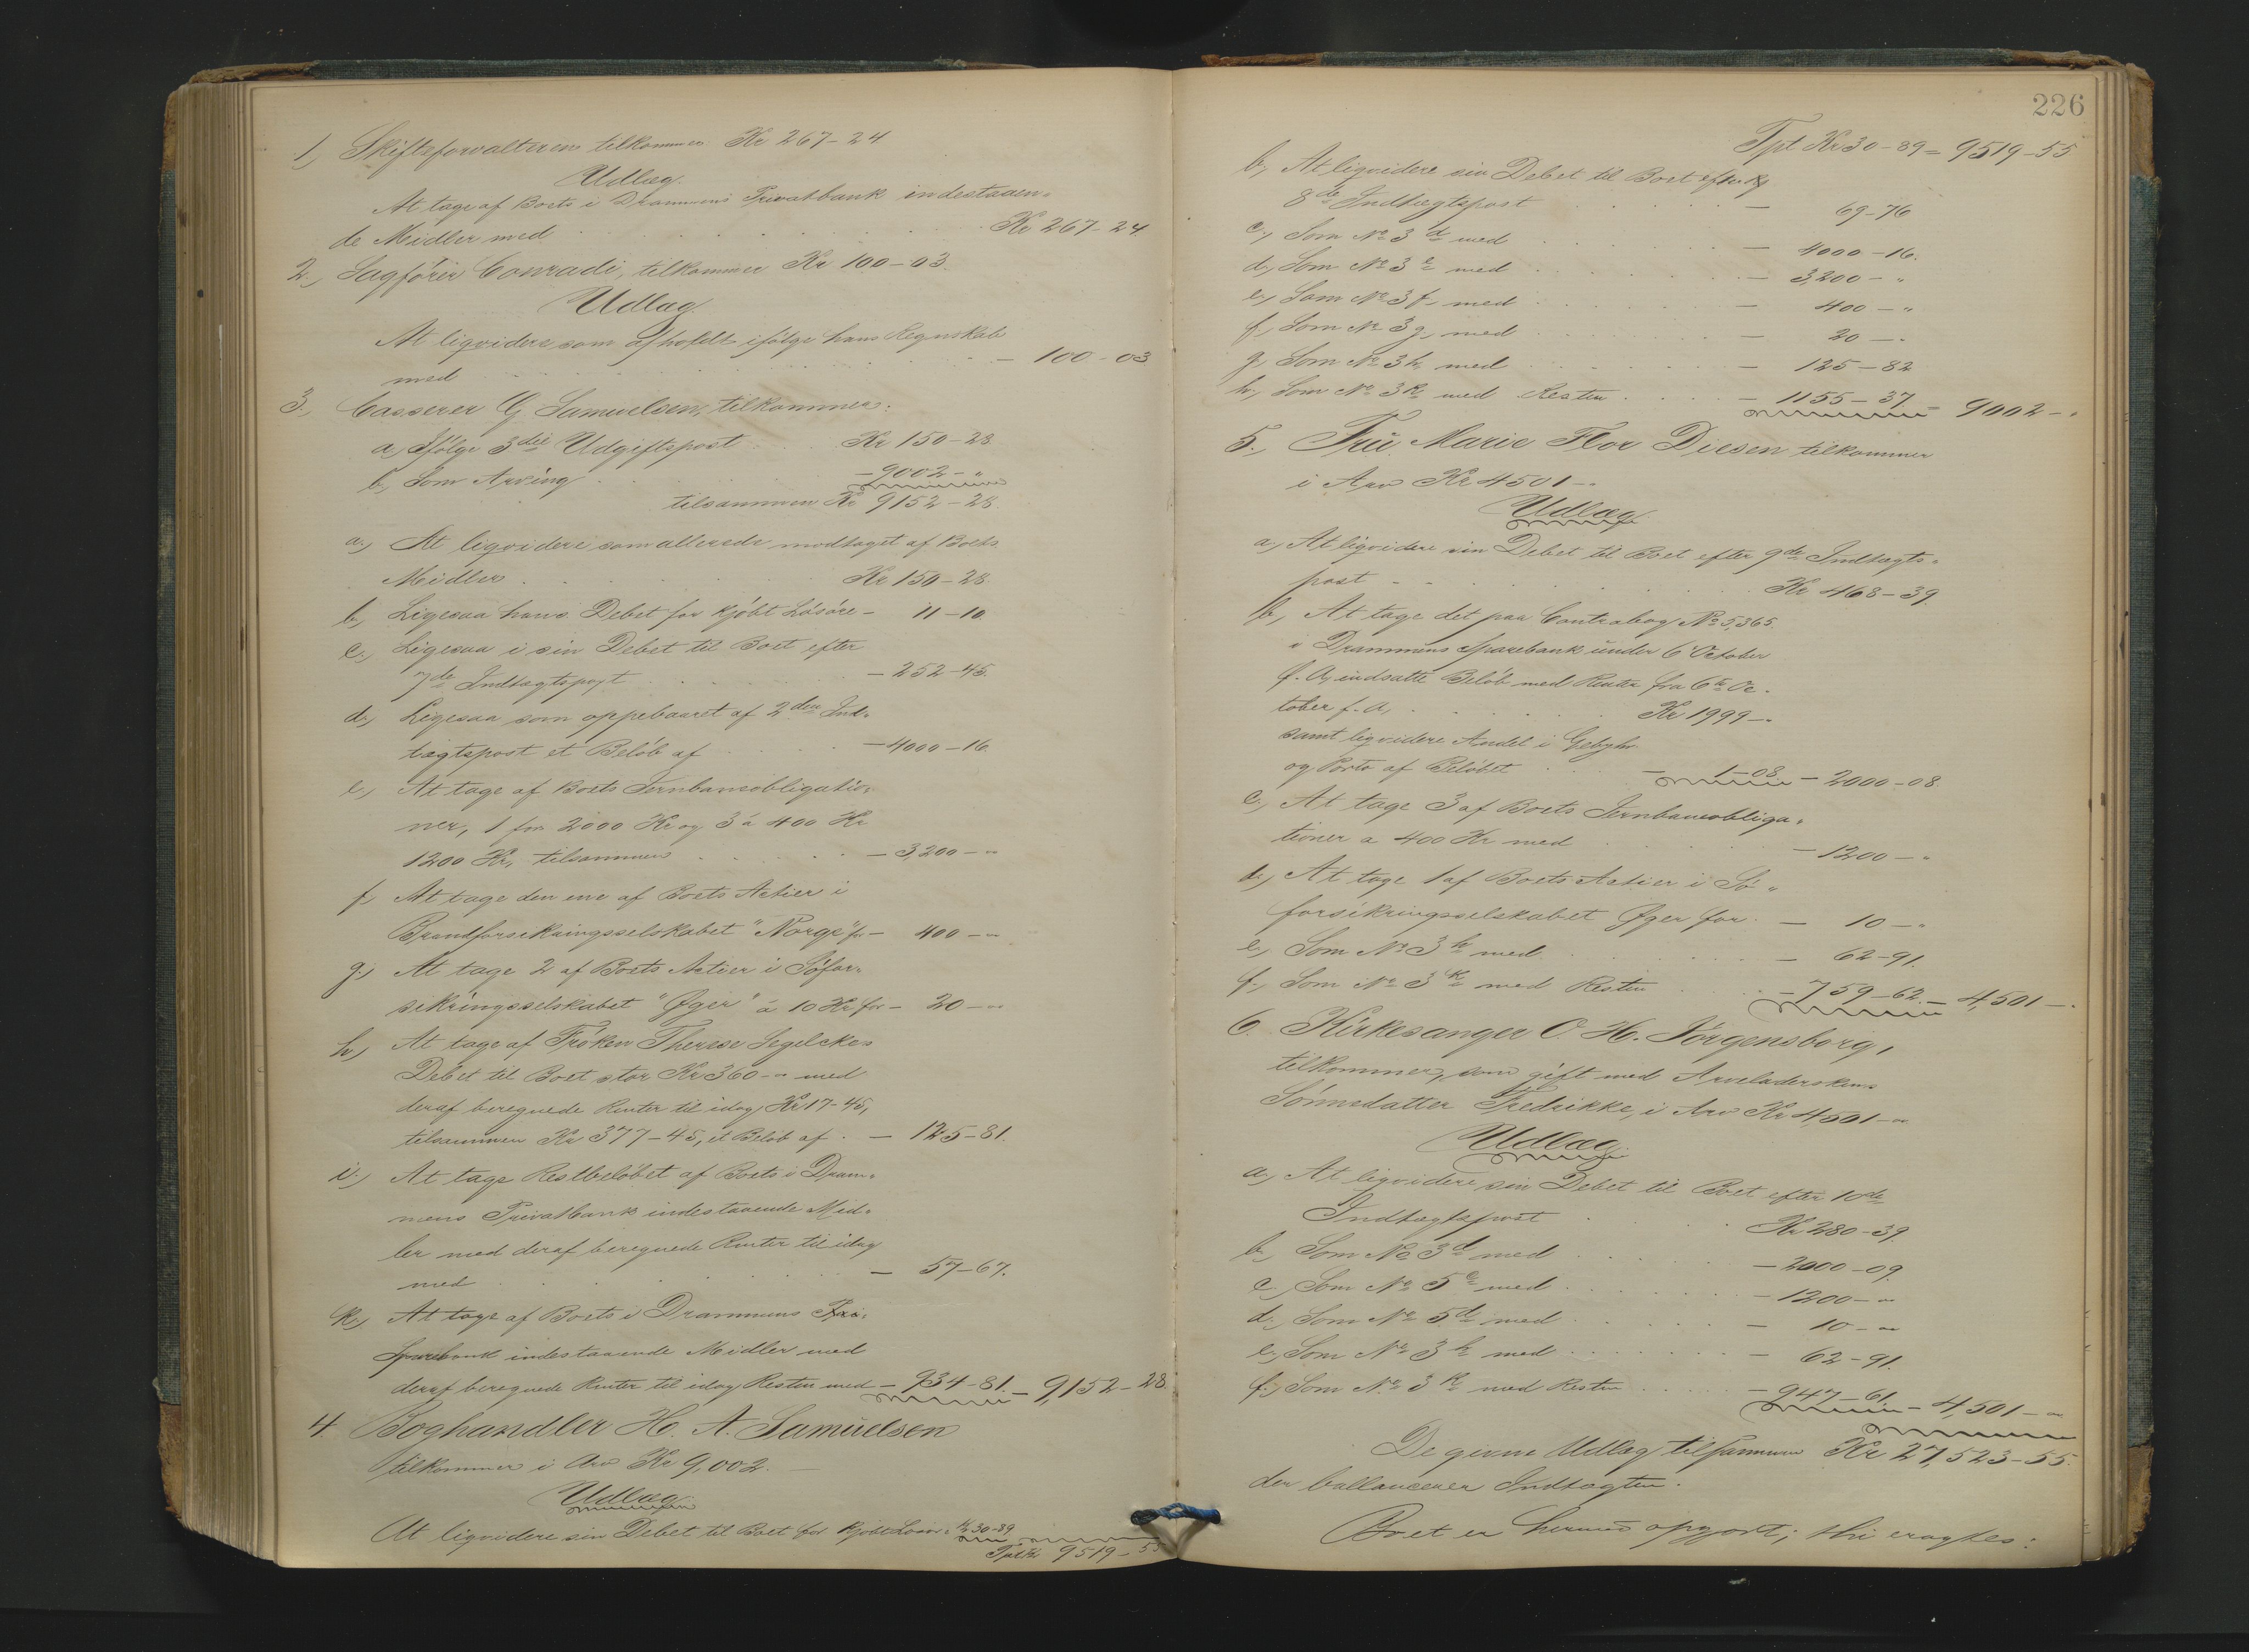 1, Skifteforvalteren tilkommer Kr 267-24
Udlæg.
At tage af Boets i Drammens Privatbank indestaaen-
de Midler med Kr 267-24.
2, Sagfører Conradi, tilkommer Kr 100-03.
Udlæg.
At liqvidere som afholdt ifølge hans Regnskab
med - 100-03
3., Casserer G. Samuelsen, tilkommer:
a, Ifølge 3die Udgiftspost Kr 150-28
b, Som Arving - 9002-"
tilsammen Kr 9152-28.
a., At liqvidere som allerede modtaget af Boets
Midler Kr 150-28.
b, Ligesaa hans Debet for kjøbt Løsøre - 11-10.
c., Ligesaa i sin Debet til Boet efter
7de Indtægtspost - 252-45.
d., Ligesaa som oppebaaret af 2den Ind-
tægtspost et Beløb af - 4000-16.
e., At tage af Boets Jernbaneobligatio-
ner, 1 for 2000 Kr og 3 à 400 Kr
1200 Kr, tilsammen - 3,200-"
f, At tage den ene af Boets Actier i
Brandforsikringsselskabet "Norge" for - 400-"
g., At tage 2 af Boets Actier i Søfor-
sikringsselskabet "Øger" à 10 Kr for - 20-"
h., At tage af Frøken Therese Segelckes
Debet til Boet stor Kr 360-" med
deraf beregnede Renter til idag Kr 17-45,
tilsammen Kr 377-45, et Beløb af - 125-81.
i., At tage Restbeløbet af Boets i Dram-
mens Privatbank indestaaende Mid-
ler med deraf beregnede Renter til idag
med - 57-67.
k., At tage af Boets i Drammens
Sparebank indestaaende Midler med
deraf beregnede Renter til idag Resten med - 934-81. - 9,152-28
4. Boghandler H. A. Samuelsen
tilkommer i Arv Kr 9,002.-
Udlæg.
At liqvidere sin Debet til Boet for kjøbt Løsøre Kr 30-89
Tpt Kr 9519-55
226
Tpt Kr 30-89 = 9519-55
b, At liqvidere sin Debet til Boet efter
8de Indtægtspost - 69-76
c., Som No 3 d med - 4000-16.
d., Som No 3 e med - 3,200-"
e., Som No 3 f med - 400-"
f, Som No 3 g, med - 20-"
g, Som No 3 h, med - 125-82
h., Som No 3 k med Resten - 1155-37 = 9002-"
5., Fru Marie Flor Diesen tilkommer
i Arv Kr 4501-"
Udlæg.
a, At liqvidere sin Debet til Boet efter 9de Indtægts-
post Kr 468-39.
b, At tage det paa Contrabog No 5,365.
i Drammens Sparebank under 6 October
f. A, indsatte Beløb med Renter fra 6te Oc-
tober f. A, Kr 1999-"
samt liqvidere Andel i Gebyhr
og Porto af Beløbet - 1-08 - 2000-08.
c., At tage 3 af Boets Jernbaneobliga-
tioner a 400 Kr med - 1200-"
d., At tage 1 af Boets Actier i Sø-
forsikringsselskabet Øger for - 10-"
e., Som No 3 h med - 62-91.
f., Som No 3 k med Resten - 759-62. - 4,501-"
6. Kirkesanger O. H. Jørgensborg,
tilkommer, som gift med Arveladerskens
Sønnedatter Fredrikke, i Arv Kr 4,501-"
Udlæg.
a., At liqvidere sin Debet til Boet efter 10de
Indtægtspost Kr 280-39
b., Som No 3 d med - 2000-09.
c., Som No 5 c med - 1200-"
d., Som No 5 d med - 10-"
e., Som No 3 h med - 62-91.
f., Som No 3 k med Resten - 947-61. - 4,501-"
De givne Udlæg tilsammen Kr 27,523-55.
der ballancerer Indtægten.
Boet er hermed opgjort; thi eragtes: